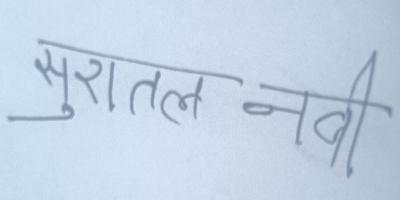 सुरातल नवी